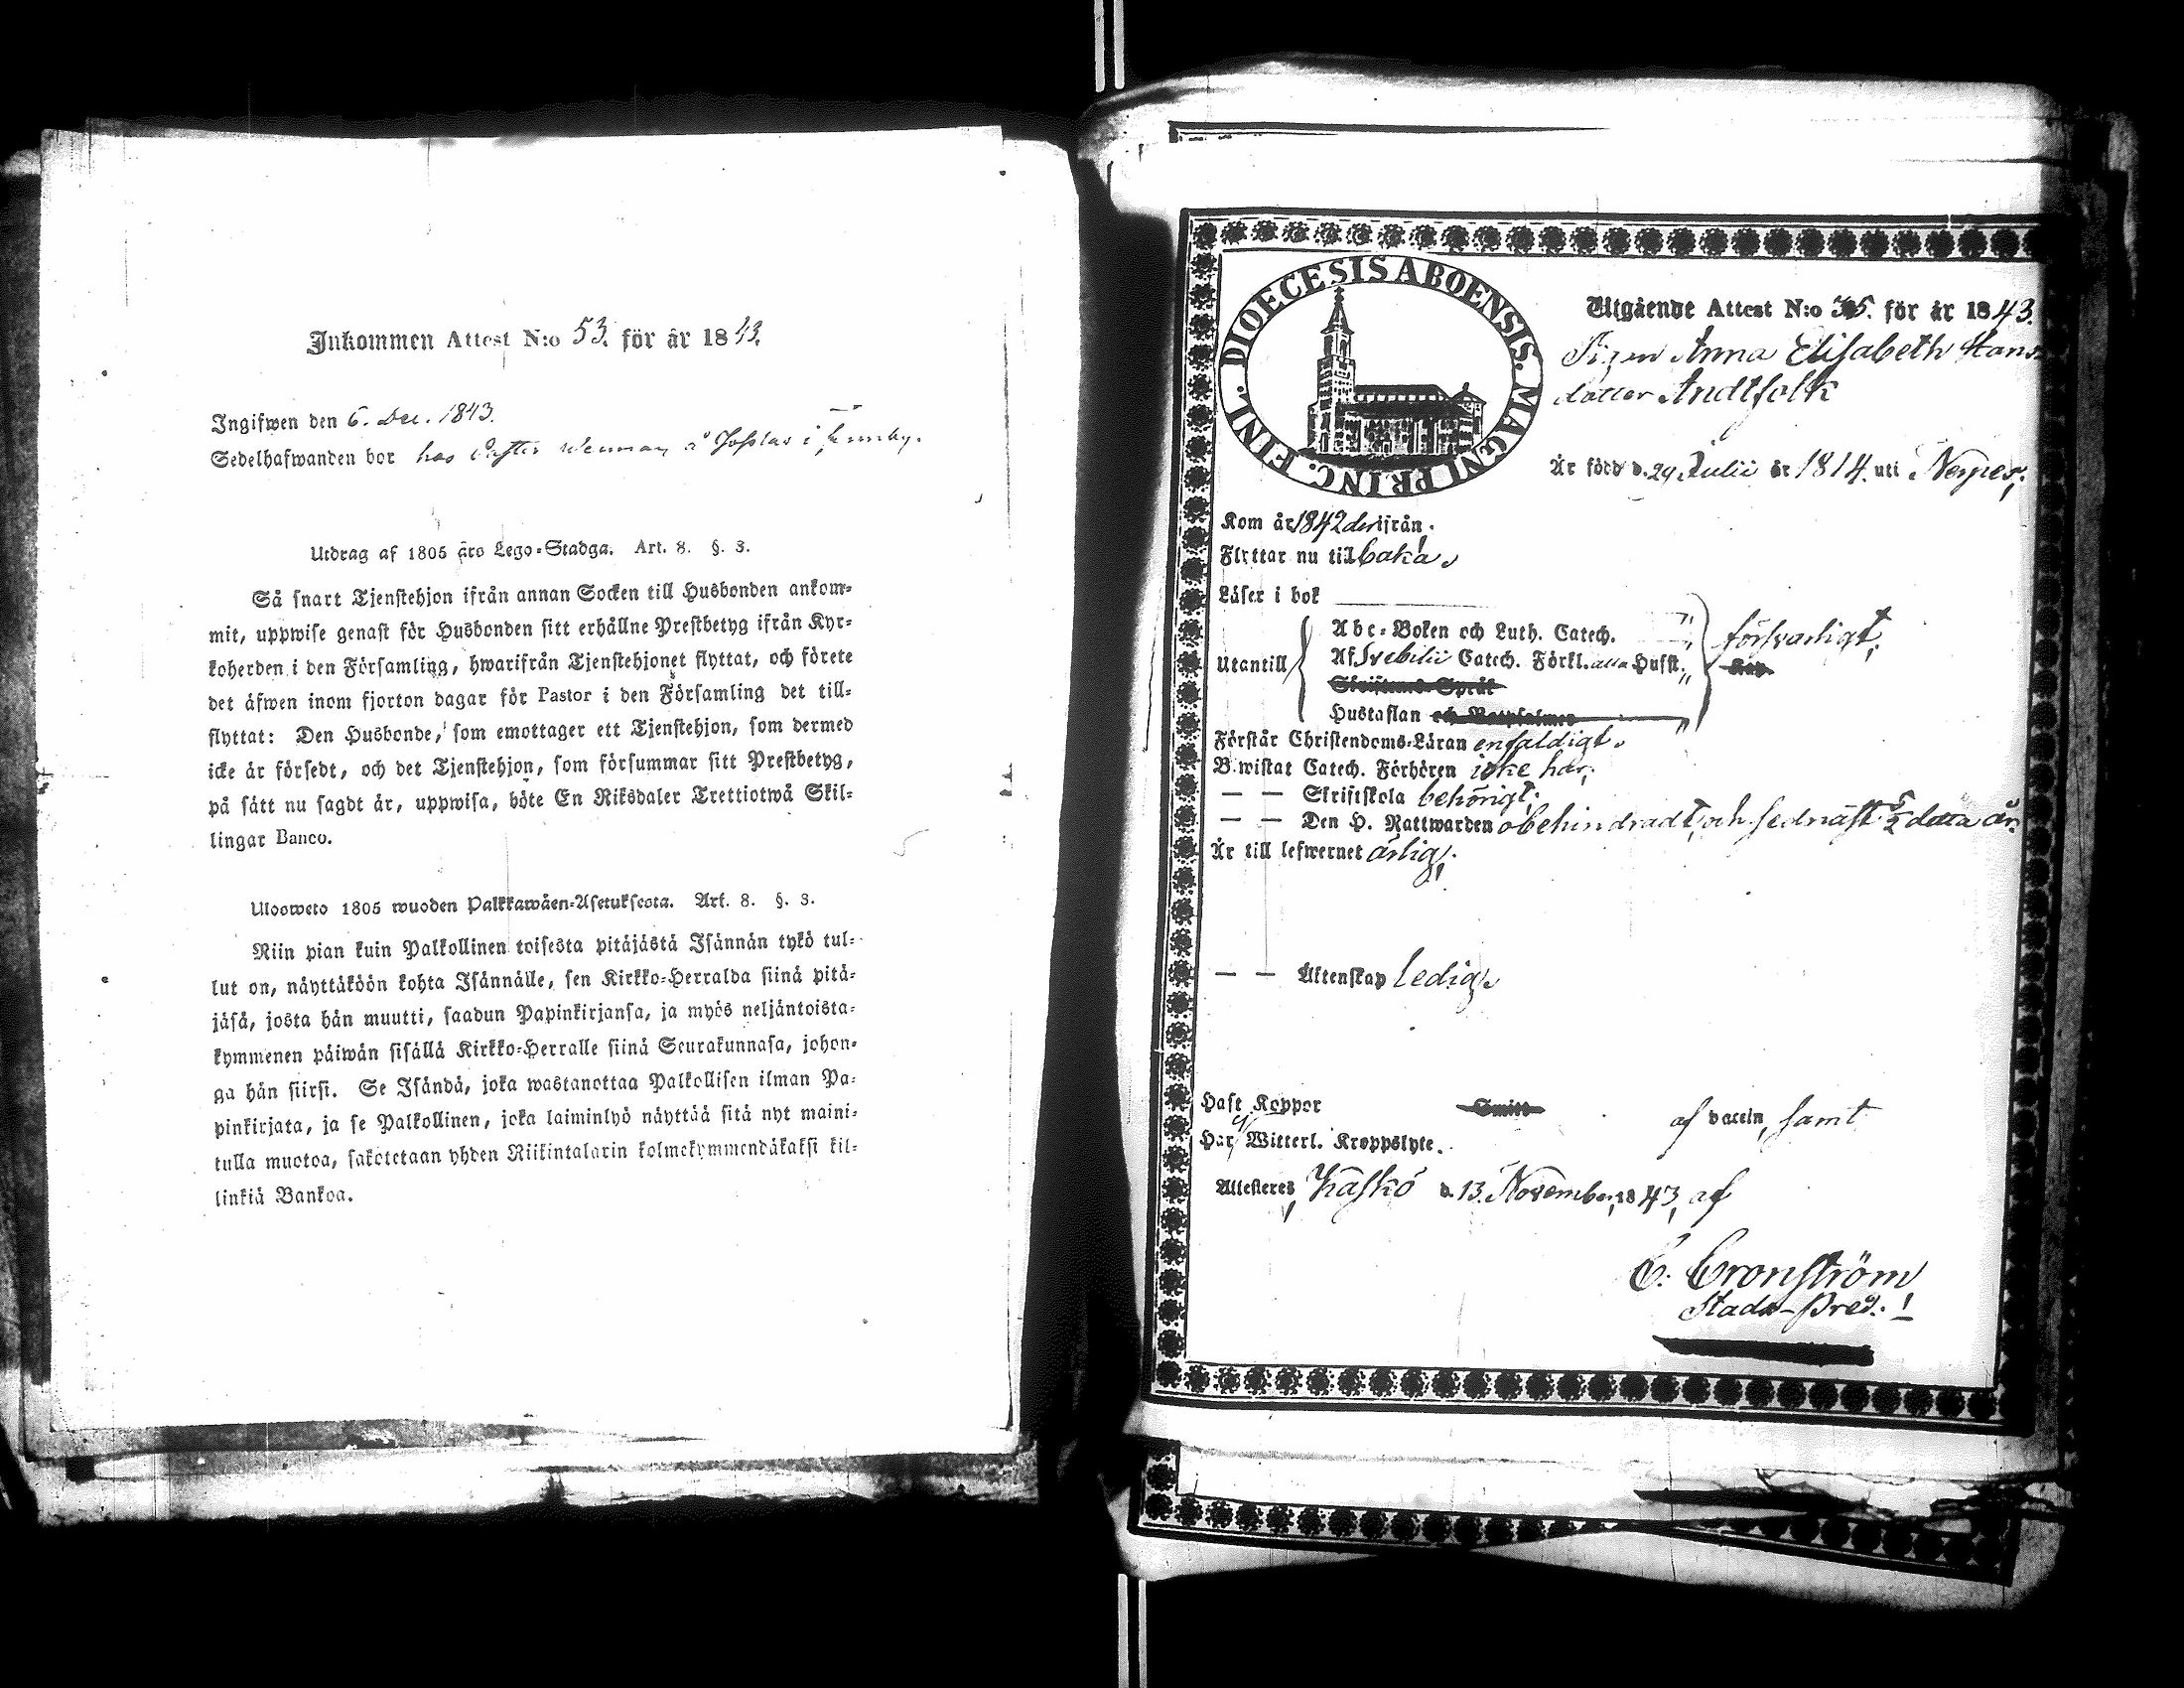 Inkommen Attest N:o 53. för år 1843.
Ingifwen den 6. Dec. 1843.
Sedelhafwanden bor hos
Utdrag af 1805 års Lego-Stadga. Art. 8. §. 3.
Så snart Tjenstehjon ifrån annan Socken till Husbonden ankom-
mit, uppwise genast för Husbonden sitt erhållne Prestbetyg ifrån Kyr-
koherden i den Församling, hwarifrån Tjenstehjonet flyttat, och förete
det äfwen inom fjorton dagar för Pastor i den Församling det till-
flyttat: Den Husbonde, som emottager ett Tjenstehjon, som dermed
icke är försedt, och det Tjenstehjon, som försummar sitt Prestbetyg,
på sätt nu sagdt är, uppwisa, böte En Riksdaler Trettiotwå Skil-
lingar Banco.
Ulosweto 1805 wuoden Palkkawäen-Asetuksesta. Art. 8. §. 3.
Niin pian kuin Palkollinen toisesta pitäjästä Isännän tykö tul-
lut on, näyttäköön kohta Isännälle, sen Kirkko-Herralda siinä pitä-
jäsä, josta hän muutti, saadun Papinkirjansa, ja myös neljäntoista-
kymmenen päiwän sisällä Kirkko-Herralle siinä Seurakunnasa, johon-
ga hän siirsi. Se Isändä, joka wastanottaa Palkollisen ilman Pa-
pinkirjata, ja se Palkollinen, joka laiminlyö näyttää sitä nyt maini-
tulla muotoa, sakotetaan yhden Riikintalarin kolmekymmendäkaksi kil-
linkiä Bankoa.
DIOECESIS ABOENSIS. MAGNI PRINC. FINL.
Utgående Attest N:o 35. för år 1843.
Pigan Anna Elisabeth Hans
dotter Andtfolk
Är född d. 29 Julii år 1814. uti Nerpes,
Kom år 1842 derifrån.
Flyttar nu tillbaka.
Läser i bok
Utantill
Abc-Boken och Luth. Catech.
Af Svebilii Catech. Förkl. alla Hufst.
försvarligt,
Skriftenes Språk
Hustaflan och Botpsalmer
Förstår Christendoms-Läran enfaldigt.
Bewistat Catech. Förhören icke här,
— — Skriftskola behörigt,
— — Den H. Nattwarden obehindradt, och sednäst 5/2 detta år.
Är till lefwernet ärlig,
— — Äktenskap ledig.
Haft Koppor Smitt af vaccin, samt
Har ej Witterl. Kroppslyte.
Attesteres, Kaskö d. 13. November, 1843, af
C. Cronström
Stads-Pred. !